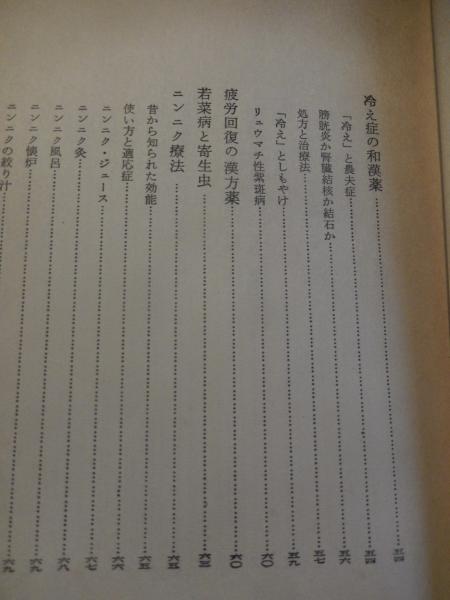 冷え症の和漢薬……五四
「冷え」と農夫症……五四
膀胱炎か腎臓結核か結石か……五六
処方と治療法……五七
「冷え」としもやけ……五九
リュウマチ性紫斑病……六〇
疲労回復の漢方薬……六〇
若菜病と寄生虫……六三
ニンニク療法……六五
昔から知られた効能……六五
使い方と適応症……六六
ニンニク・ジュース……六七
ニンニク灸……六八
ニンニク風呂……六九
ニンニク懐炉……六九
ニンニクの絞り汁